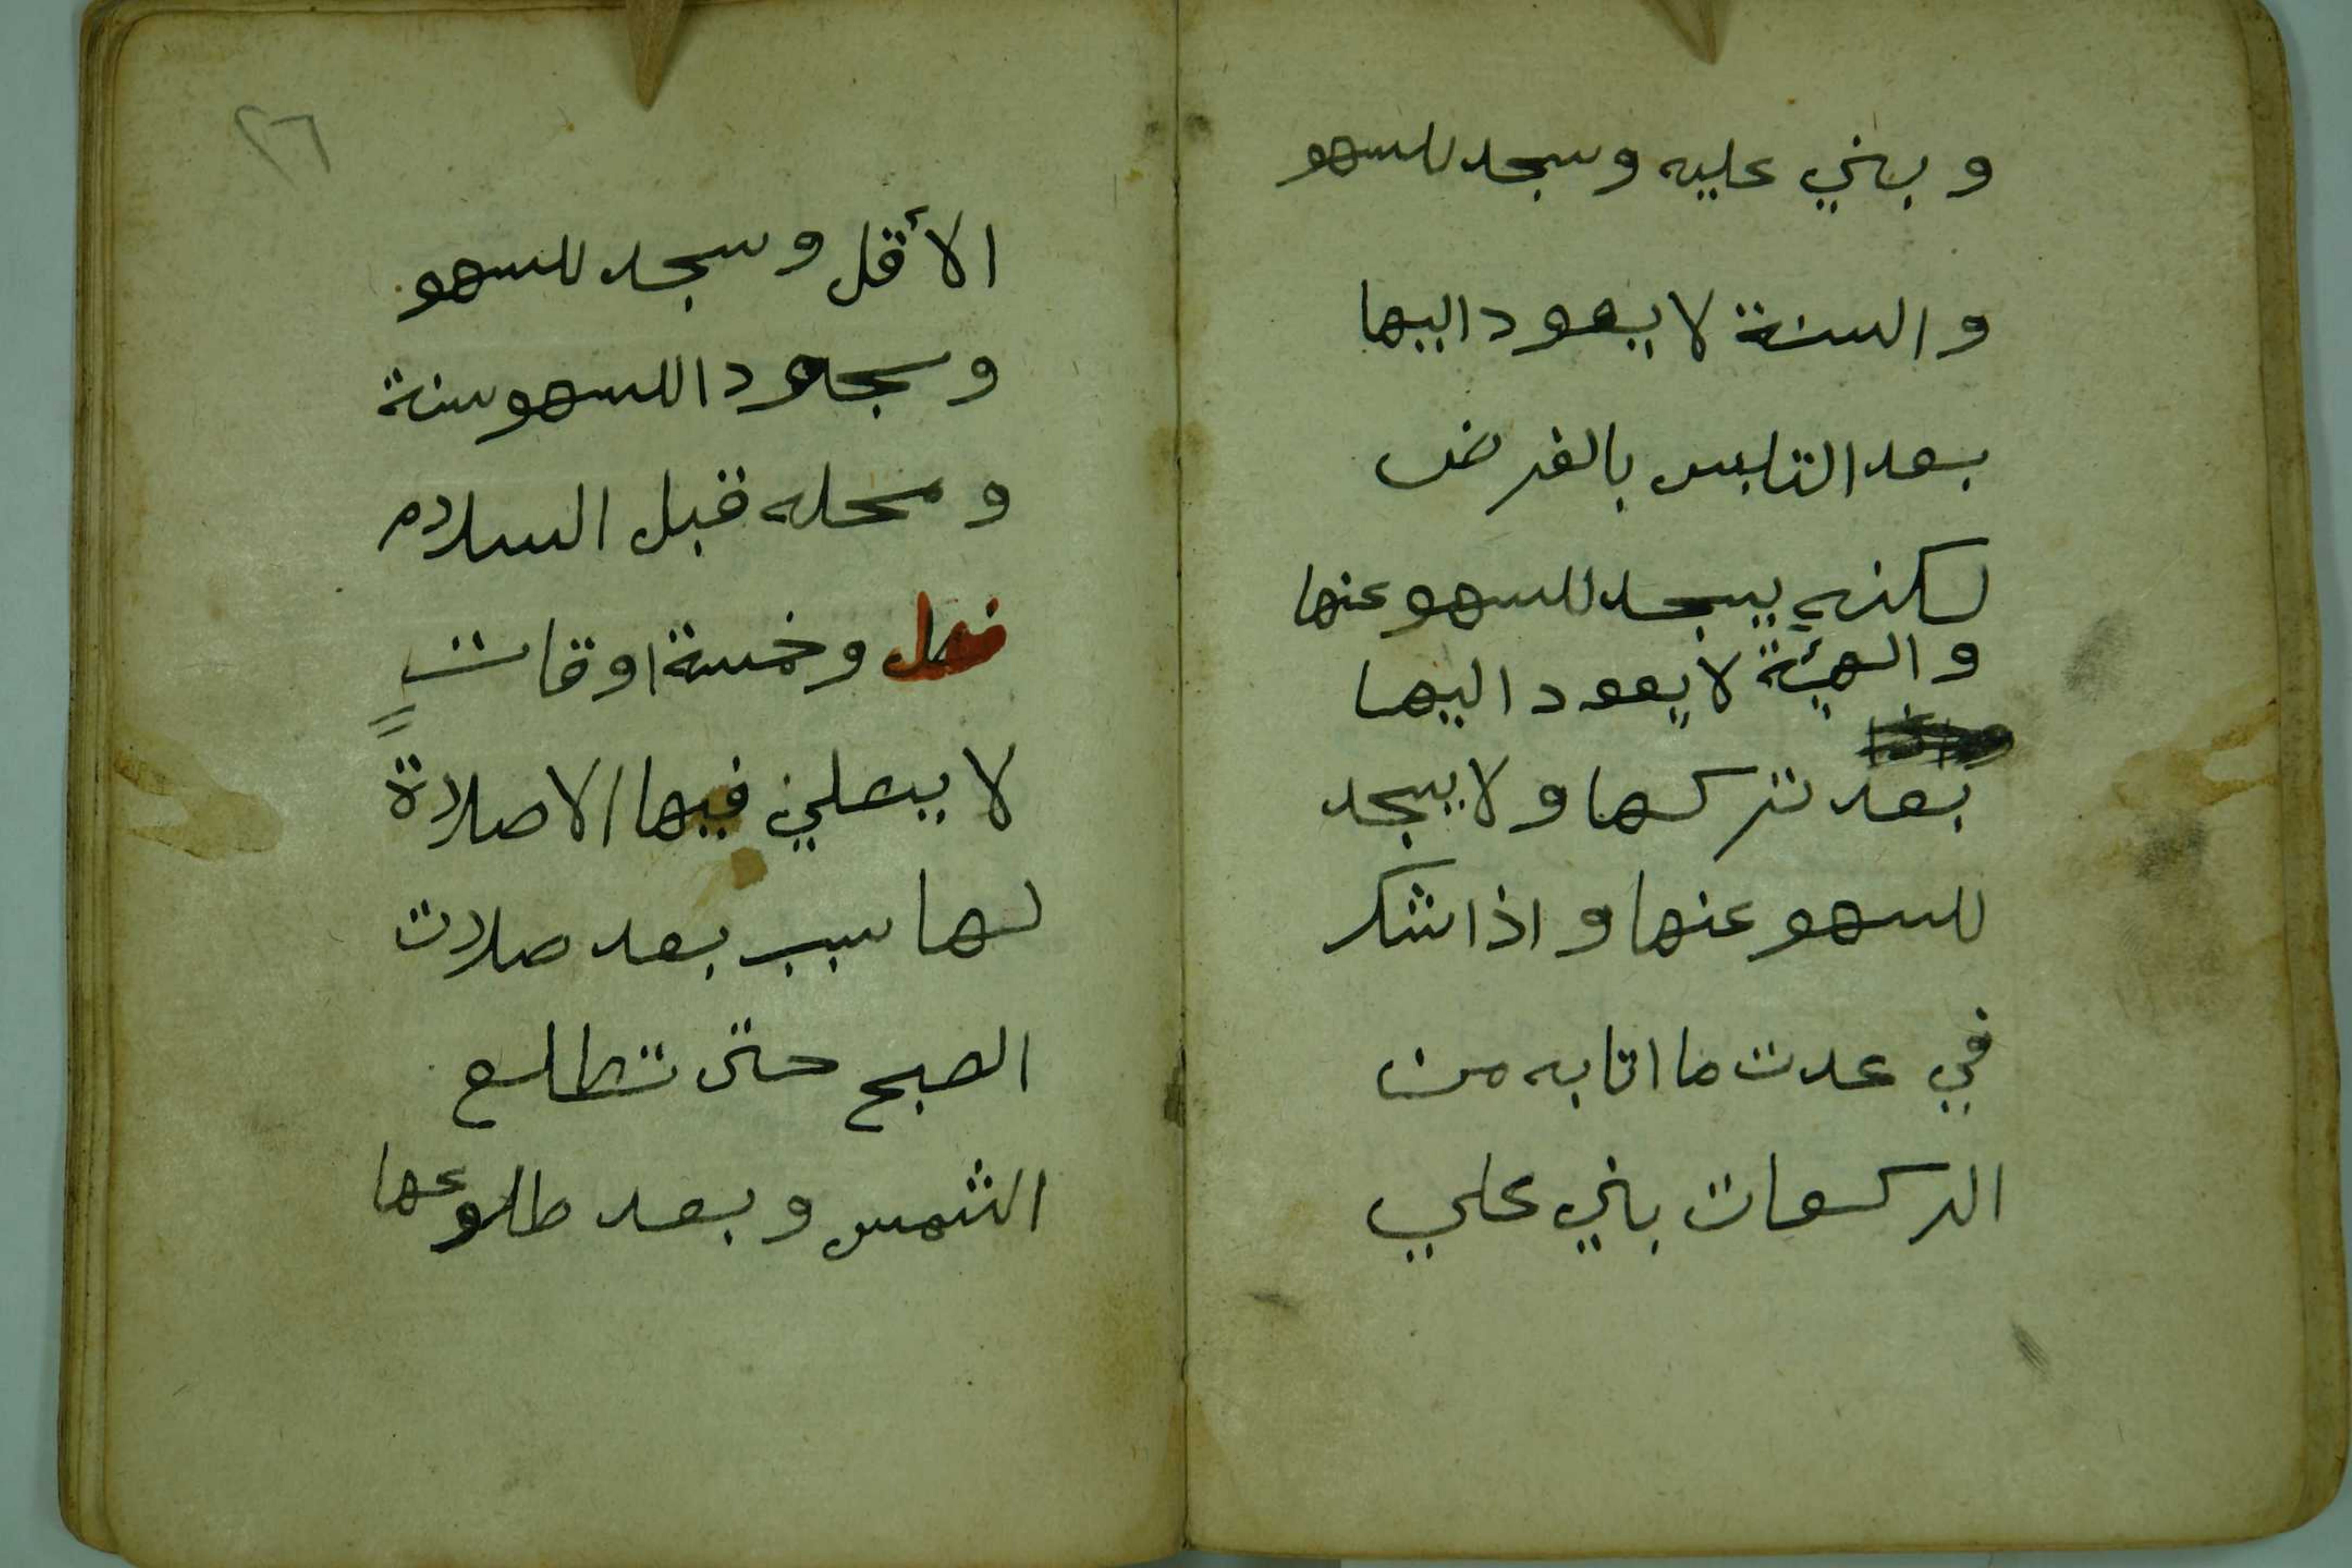 وبني عليه وسجد للسهو
والسنة لا يعود اليها
بعد التلبس بالفرض
لكنه يسجد للسهو عنها
والهيئة لا يعود اليها
بعد تركها ولا يسجد
للسهو عنها واذا شك
في عدت ما اتا به من
الركعات بني علي
٢٦
الأقل وسجد للسهو
وسجود السهو سنة
ومحله قبل السلام
فصل وخمسة اوقات
لا يصلي فيها الا صلاة
لها سبب بعد صلات
الصبح حتى تطلع
الشمس وبعد طلوعها